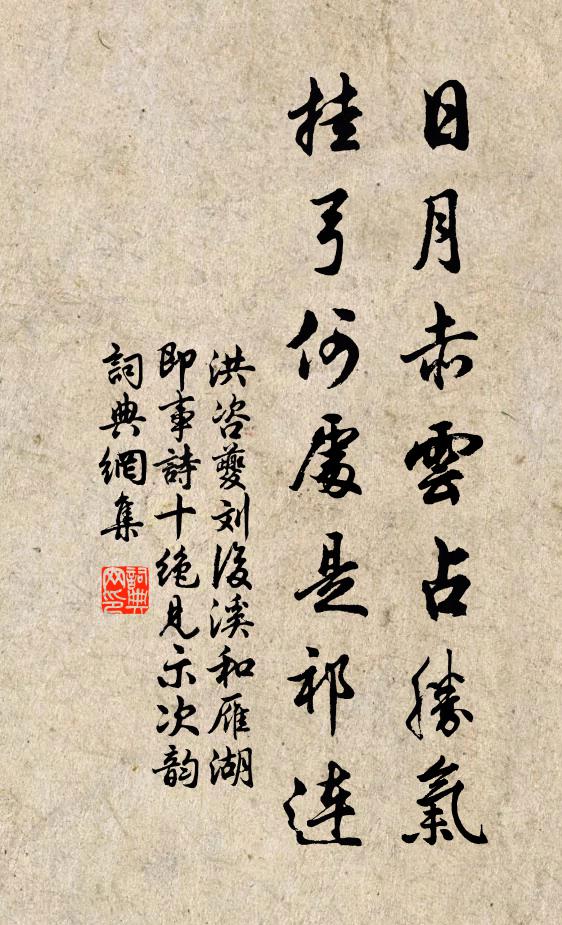 日月赤雲占勝氣
挂弓何處是祁連
洪咨夔刘後溪和雁湖
即事詩十绝見示次韵
詞典網集
詞典
网印